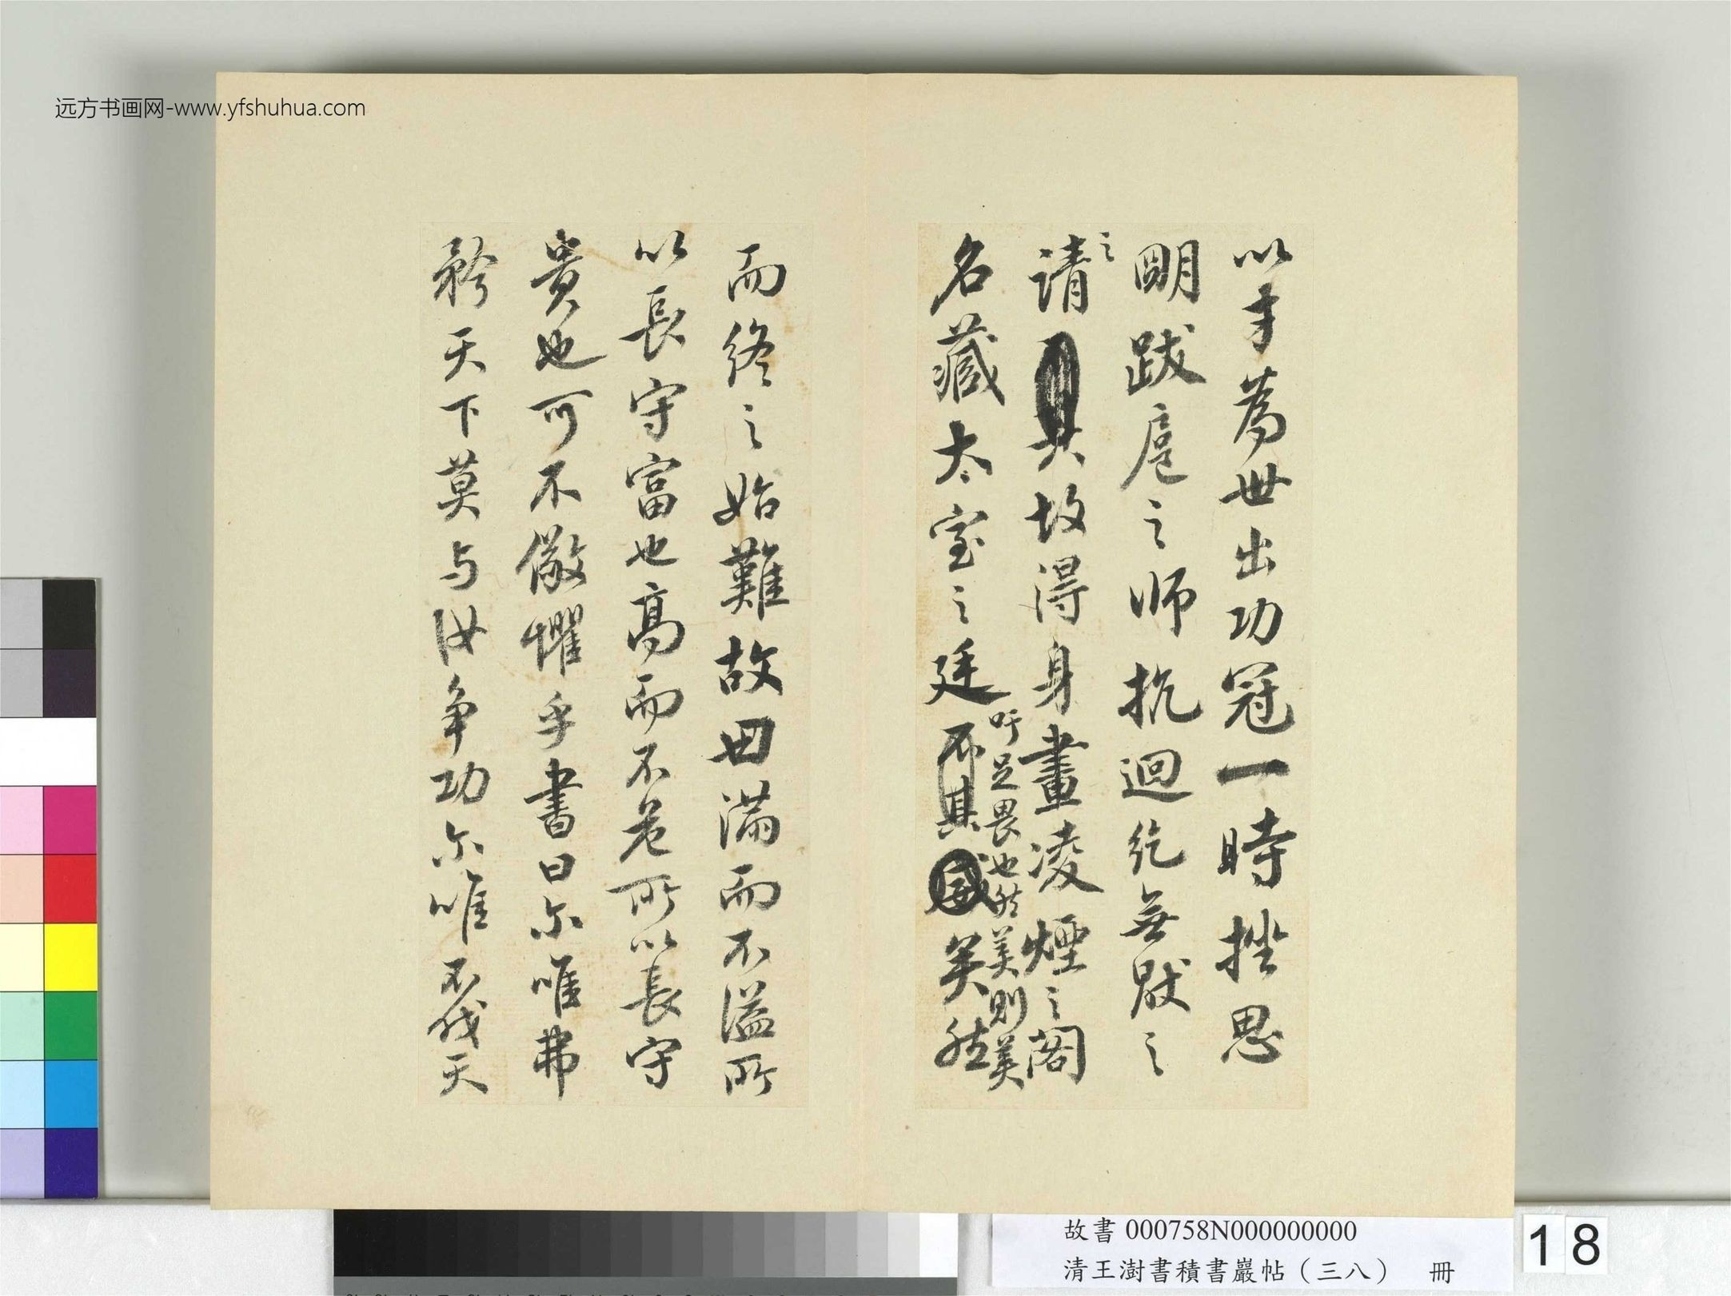 远方书画网-www.yfshuhua.com
以才為世出功冠一時挫思
明跋扈之師抗迴紇無猒之
請之
其故得身畫凌煙之閣
名藏太室之廷
吁足畏也然美則美
矣然
而終之始難故曰滿而不溢所
以長守富也高而不危所以長守
貴也可不儆懼乎書曰尔唯弗
矜天下莫与汝争功尔唯不伐天
故書 000758N000000000
清王澍書積書巖帖（三八） 冊
18